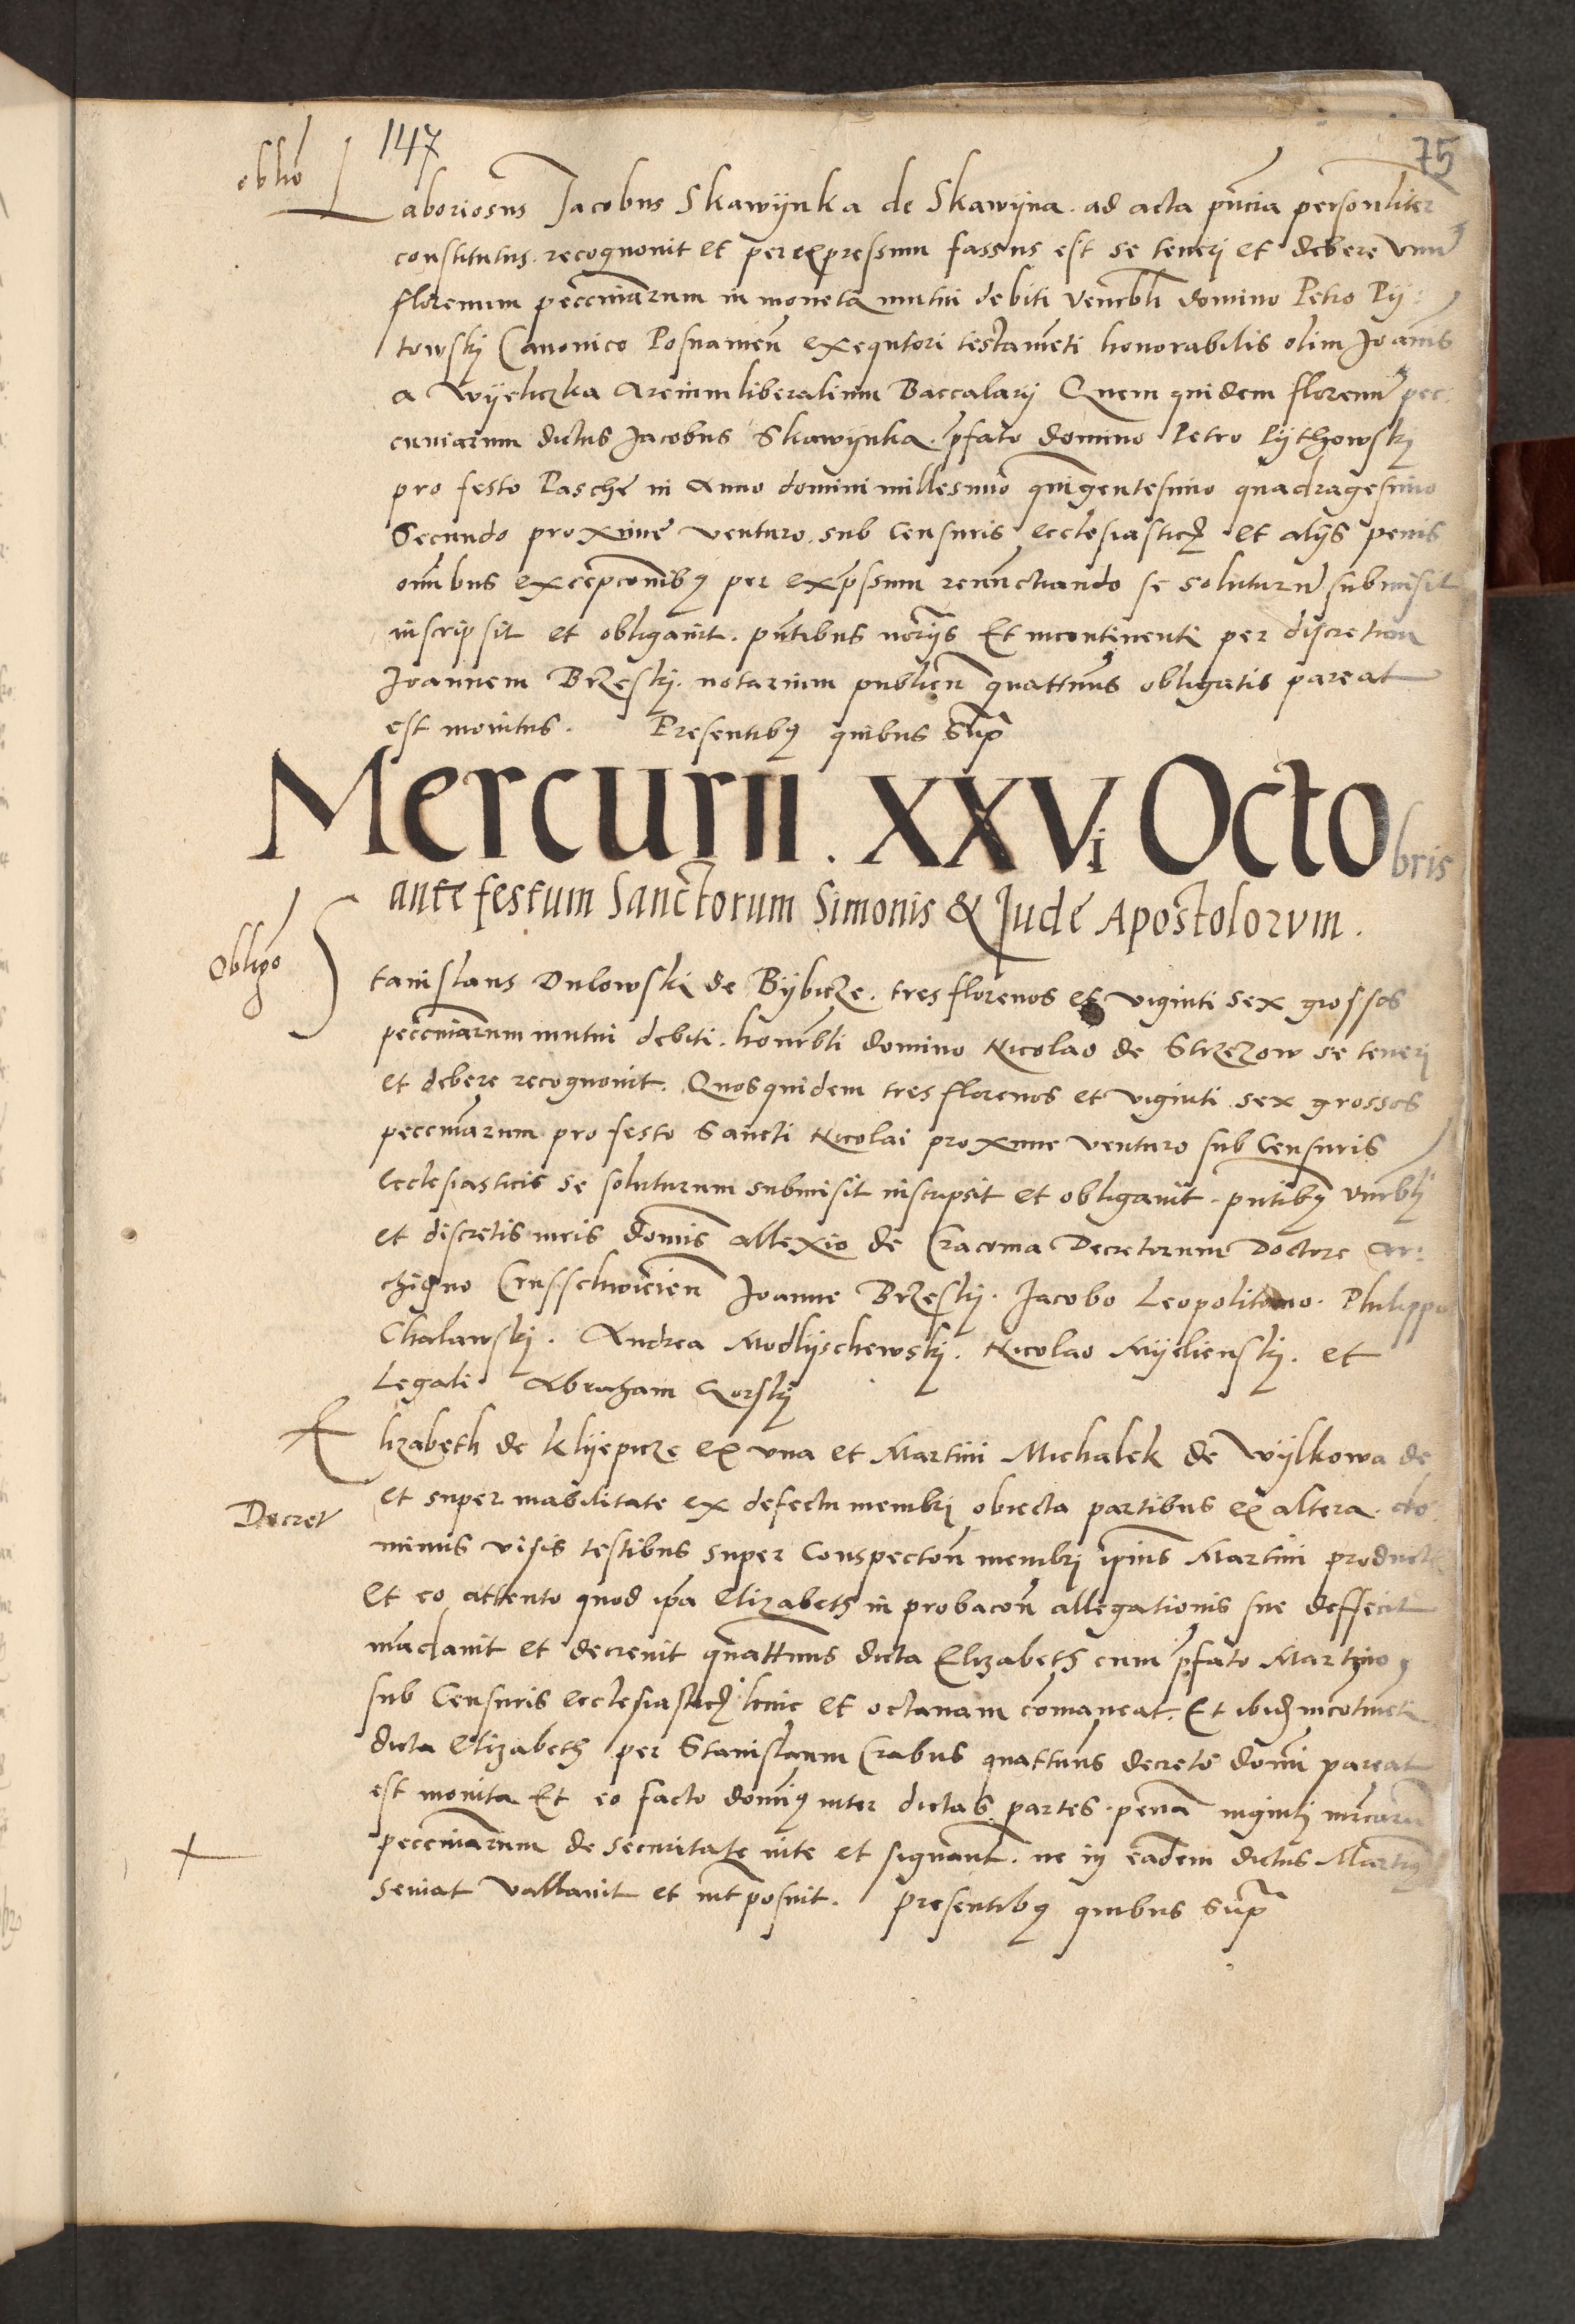 147
75
oblio
Laboriosus Jacobus Skawynka de Skawyna. ad acta pñcia personliter
constitutus. recognovit et per expressum fassus est se teneri et debere unũ
florenum pecceniarum in moneta mutui debiti venrbli domino Petro Py:
towskj Canonico Posnamen̄ exequtori testamẽti honorabilis olim Joañis
a Wyeliczka Arcium liberalium Baccalarij Quem quidem florenũ pec:
cuniarum dictus Jacobus Skawynka. p̃fato domino Petro Pythowskj
pro festo Pasche in Anno domini millesimo quĩgentesimo quadragesimo
Secundo proxime venturo. sub Censuris ecclesiasticꝭ et alijs penis
omĩbus excepconibꝯ per exp̃ssum renũctiando se soluturũ submisit
inscripsit et obligavit. pñtibus norijs Et incontinenti per discretum
Joannem Brzeskj. notarium publicũ quattenus obligatis pareat
est monitus. Presentibꝯ quibus Sup̃
Mercurii. XXVi Octobris
ante festum Sanctorum Simonis & Jude Apostolorum.
Obligo
Stanislaus Dulowskj de Bybicze. tres florenos et viginti sex grossos
pecceniarum mutui debiti. honrbli domino Nicolao de Strzezow se teneri
et debere recognovit. Quosquidem tres florenos et viginti sex grossos
peccuniarum pro festo Sancti Nicolai proxime venturo sub Censuris
Ecclesiasticis se soluturum submisit inscripsit et obligavit. pñtibꝯ vnrbli
et discretis viris domĩs Allexio de Cracovia Decretorum Doctore Ar:
chigno Crusschwicien̄ Joanne Brzeskj. Jacobo Leopolitano. Philippo
Chalawskj. Andrea Modlyschewskj. Nicolao Myelienskj. et
Legati Abraham Gorskj
Elizabeth de Klyepicze ex una et Martini Michalek de Wylkowa de
Decret
et super inabilitate ex defectu membrj obiecta partibus ex altera. do:
minus visis testibus super Conspectoñ membrj ipius Martini productꝭ
Et eo attento quod ip̃a Elizabeth in probacoñ allegationis sue deffecit
mãdavit et decrevit quattenus dicta Elizabeth cum p̃fato Martino
sub Censuris ecclesiasticꝭ hinc et octavam cõmaneat. Et ibidꝫ incõtineti
dicta Elizabeth per Stanislaum Crabus quattenus decreto domĩ pareat
est monita Et eo facto domĩꝯ inter dictas partes. penã viginti mrcarũ
pecceniarum de securitate vite et signant. ne in eadem dictus Martinꝯ
seviat vallavit et int̃posuit. Presentibꝯ quibus Sup̃